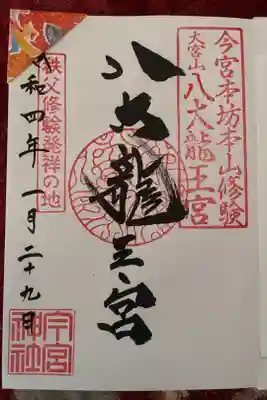 今宮本坊本山修験
大宮山
八大龍王宮
八大龍王宮
秩父修験発祥の地
令和四年 一月 二十九月
今宮
神社